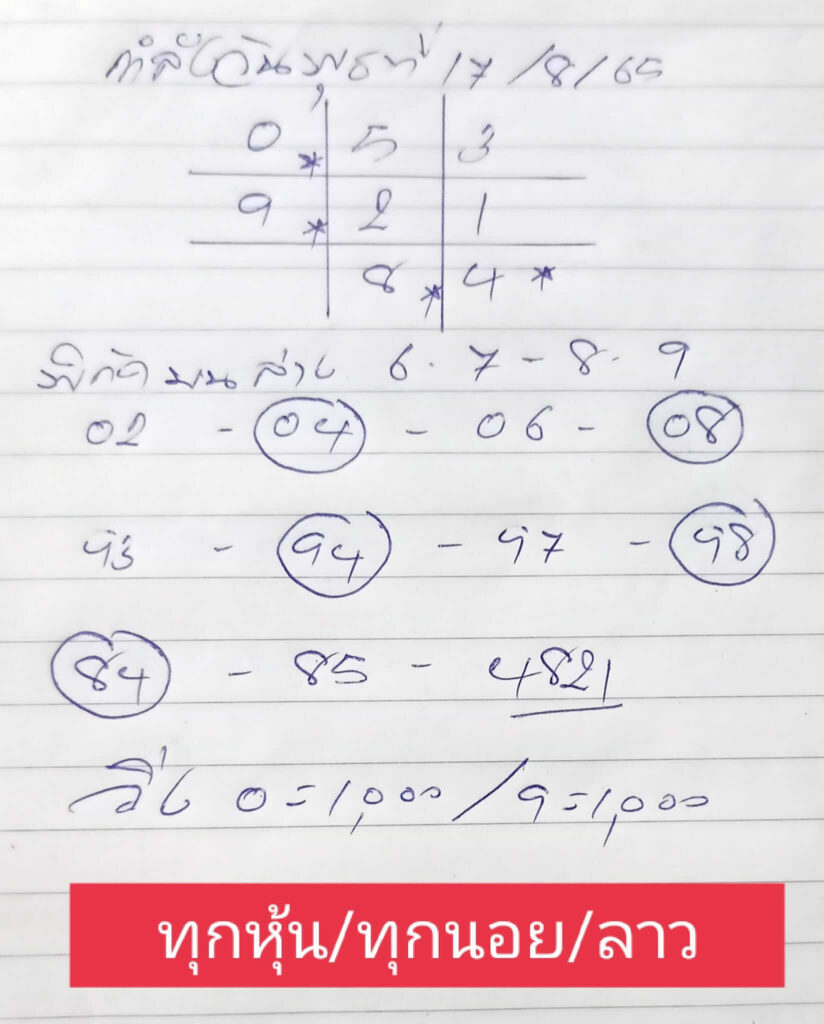 กำลังวันพุธที่ 17/8/65
0 * 5 3
9 * 2 1
8 * 4 *
พิกัด บน ล่าง 6. 7 - 8. 9
02 - 04 - 06 - 08
93 - 94 - 97 - 98
84 - 85 - 4821
วิ่ง 0=1,000/9=1,000
ทุกหุ้น/ทุกนอย/ลาว